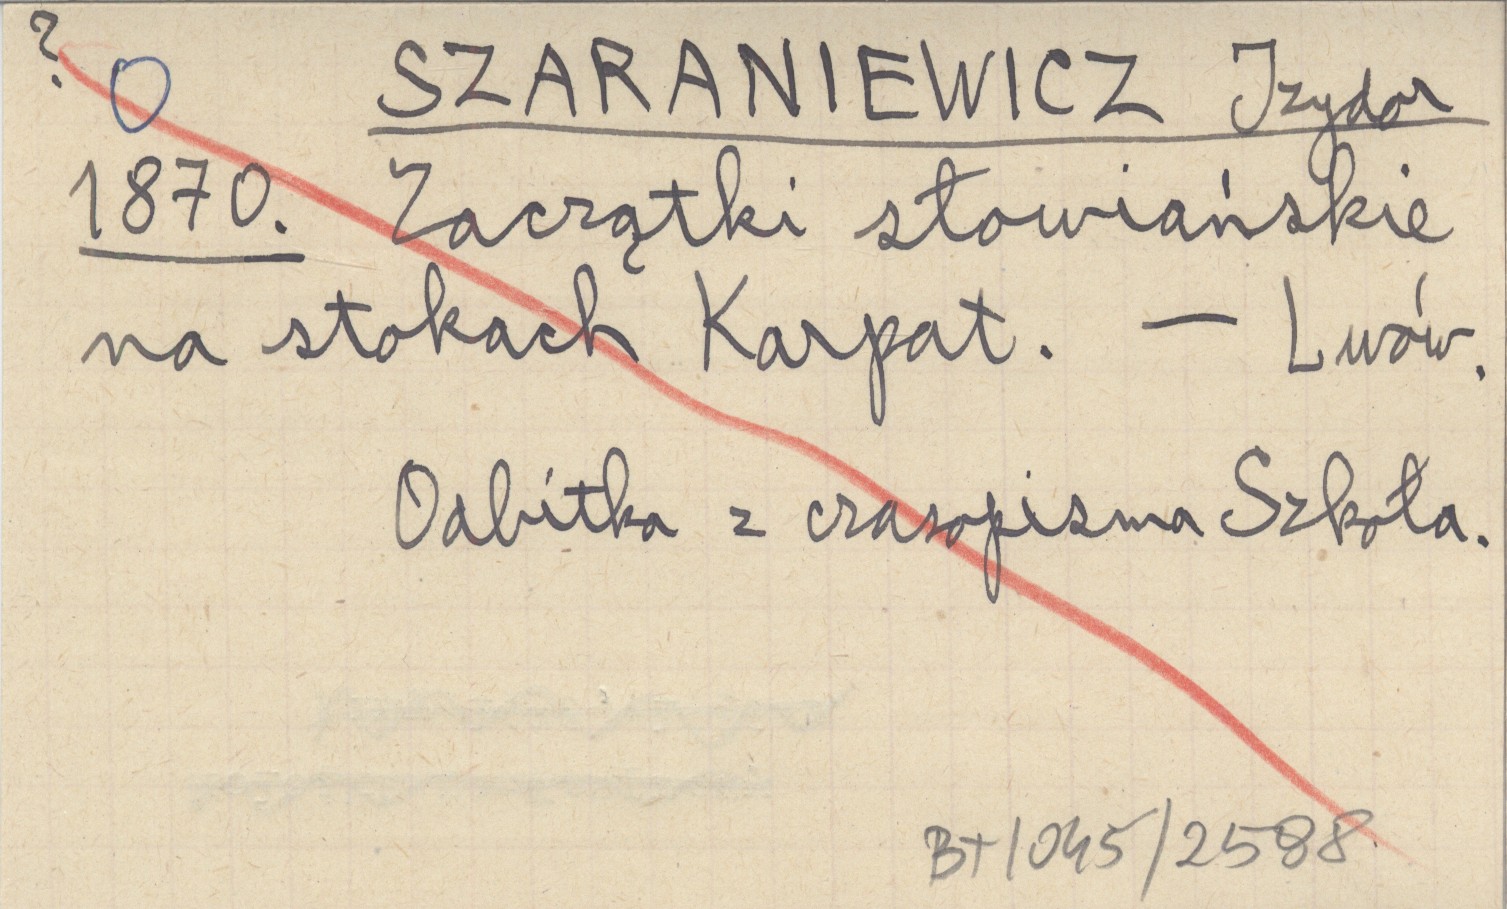 ?
O SZARANIEWICZ Izydor
1870. Zaczątki słowiańskie
na stokach Karpat. — Lwów.
Odbitka z czasopisma Szkoła.
BT/045/2588